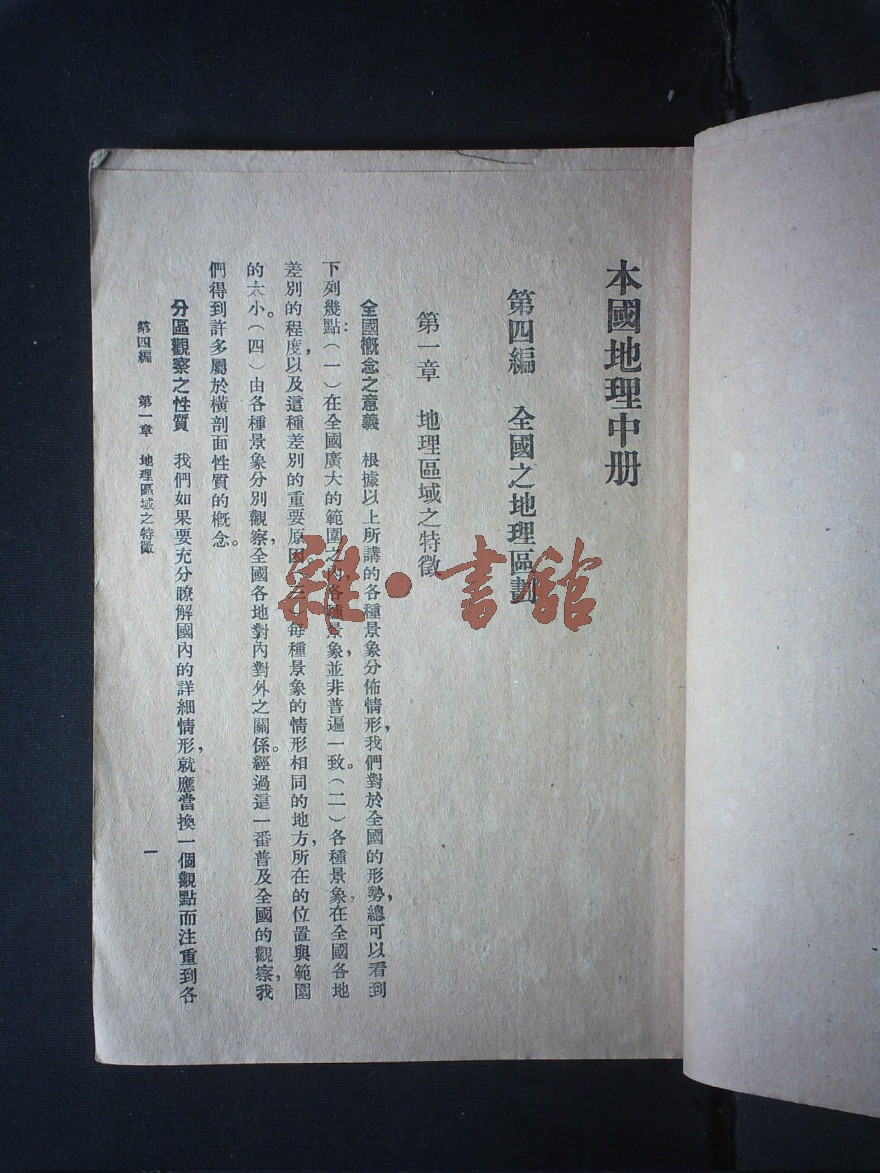 本國地理中册
第四編　全國之地理區劃
第一章　地理區域之特徵
全國概念之意義　根據以上所講的各種景象分佈情形，我們對於全國的形勢，總可以看到
下列幾點：（一）在全國廣大的範圍之內，各種景象，並非普遍一致。（二）各種景象，在全國各地
差別的程度，以及這種差別的重要原因。（三）每種景象的情形相同的地方，所在的位置與範圍
的大小。（四）由各種景象分別觀察，全國各地對內對外之關係。經過這一番普及全國的觀察，我
們得到許多屬於橫剖面性質的概念。
分區觀察之性質　我們如果要充分瞭解國內的詳細情形，就應當換一個觀點而注重到各
第四編　第一章　地理區域之特徵
一
雜·書館